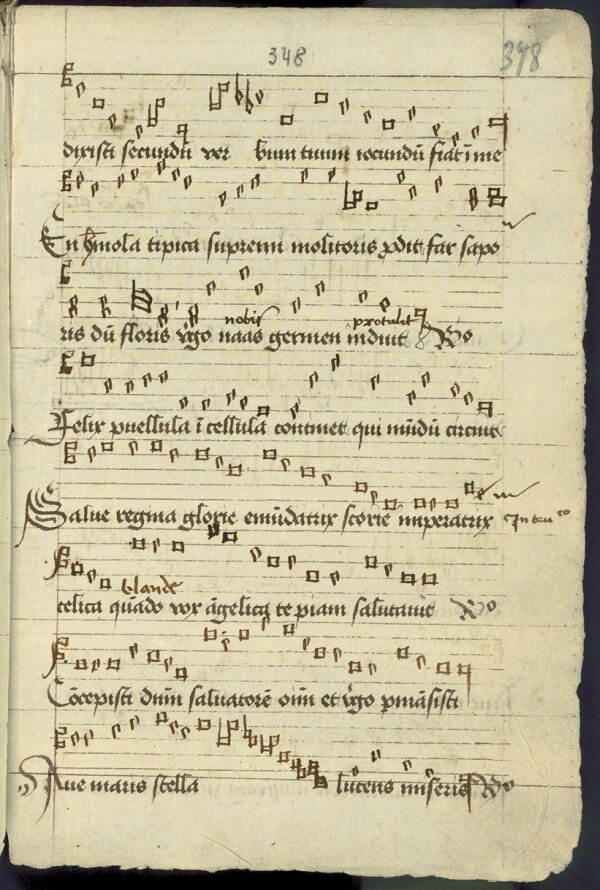 348
348
dixisti secundū ver bum tuum iocundū fiat ī me
En hmola tipica supremi molitoris pdit far sapo
nobis protulit
ris dū floris v̄go naas germen induit Ro
Felix puellula ī cellula continet qui mūdū circuit
Salue regina glorie emūdatrix scorie imperatrix
blande
celica quādo vox āgelica te piam salutauit Ro
Cōcepisti dnm̄ saluatorē oīm et v̄go pmāsisti
Aue maris stella lucens miseris Ro